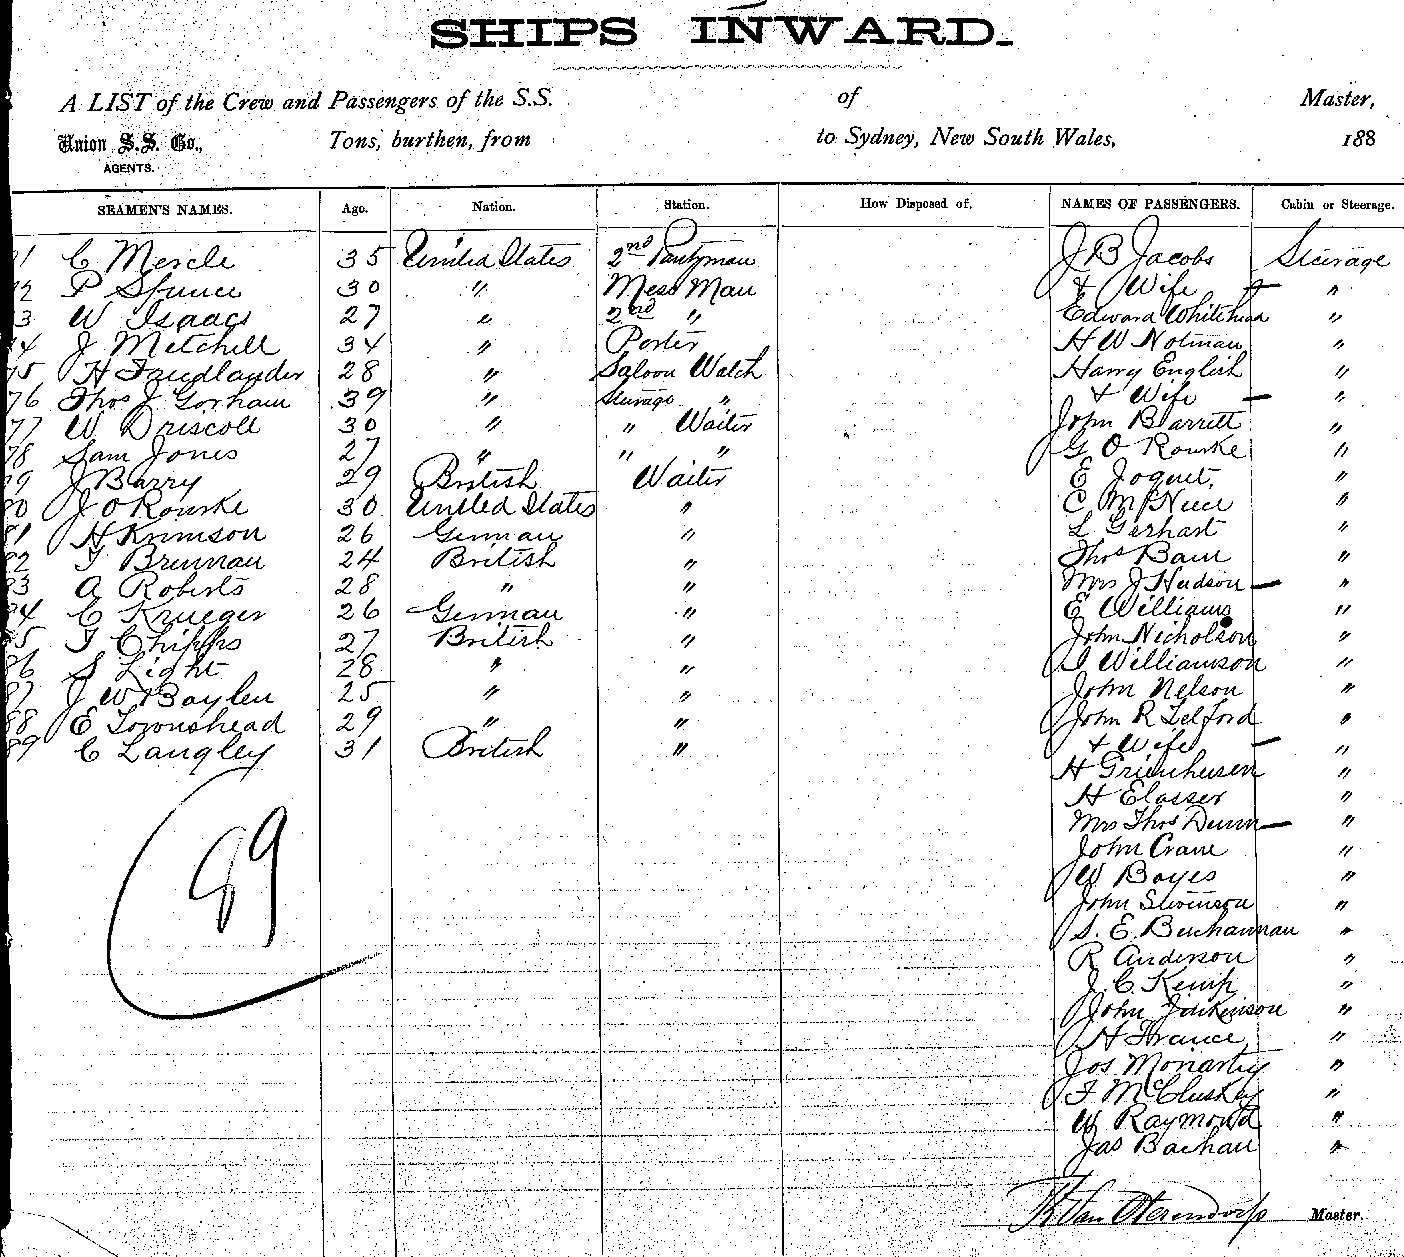 SHIPS INWARD.
A LIST of the Crew and Passengers of the S.S. of Master,
Union S.S. Co., Tons, burthen, from to Sydney, New South Wales, 188
AGENTS.
SEAMEN'S NAMES. Age. Nation. Station. How Disposed of. NAMES OF PASSENGERS. Cabin or Steerage.
71 C Mercle 35 United States 2nd Pantryman J B Jacobs Steerage
72 P Spence 30 " Mess Man & Wife — "
73 W Isaacs 27 " 2nd " Edward Whitehead "
74 J Mitchell 34 " Porter H W Notman "
75 H Friedlander 28 " Saloon Watch Harry English "
76 Thos J Gorham 39 " Steerage " & Wife — "
77 W Driscoll 30 " " Waiter John Barrett "
78 Sam Jones 27 " " " G O Rourke "
79 J Barry 29 British Waiter E Joquet, "
80 J O Rourke 30 United States " C McNeice "
81 H Krimson 26 German " L Gerhart "
82 F Brennan 24 British " Thos Bain "
83 A Roberts 28 " " Mrs J Hudson — "
84 C Krueger 26 German " E Williams "
85 F Chipps 27 British " John Nicholson "
86 S Light 28 " " Williamson "
87 J W Baylen 25 " " John Nelson "
88 E Townshead 29 " " John R Telford "
89 C Langley 31 British " & Wife — "
H Grienhusen "
H Elasser "
Mrs Thos Dunn — "
John Crane "
W Boyes "
John Stevenson "
89
S. E. Buchannan "
R Anderson "
J. C. Kemp "
John Jenkinson "
H France "
Jos Moriarty "
F McCluskey "
W Raymond "
Jas Bachan "
Master.